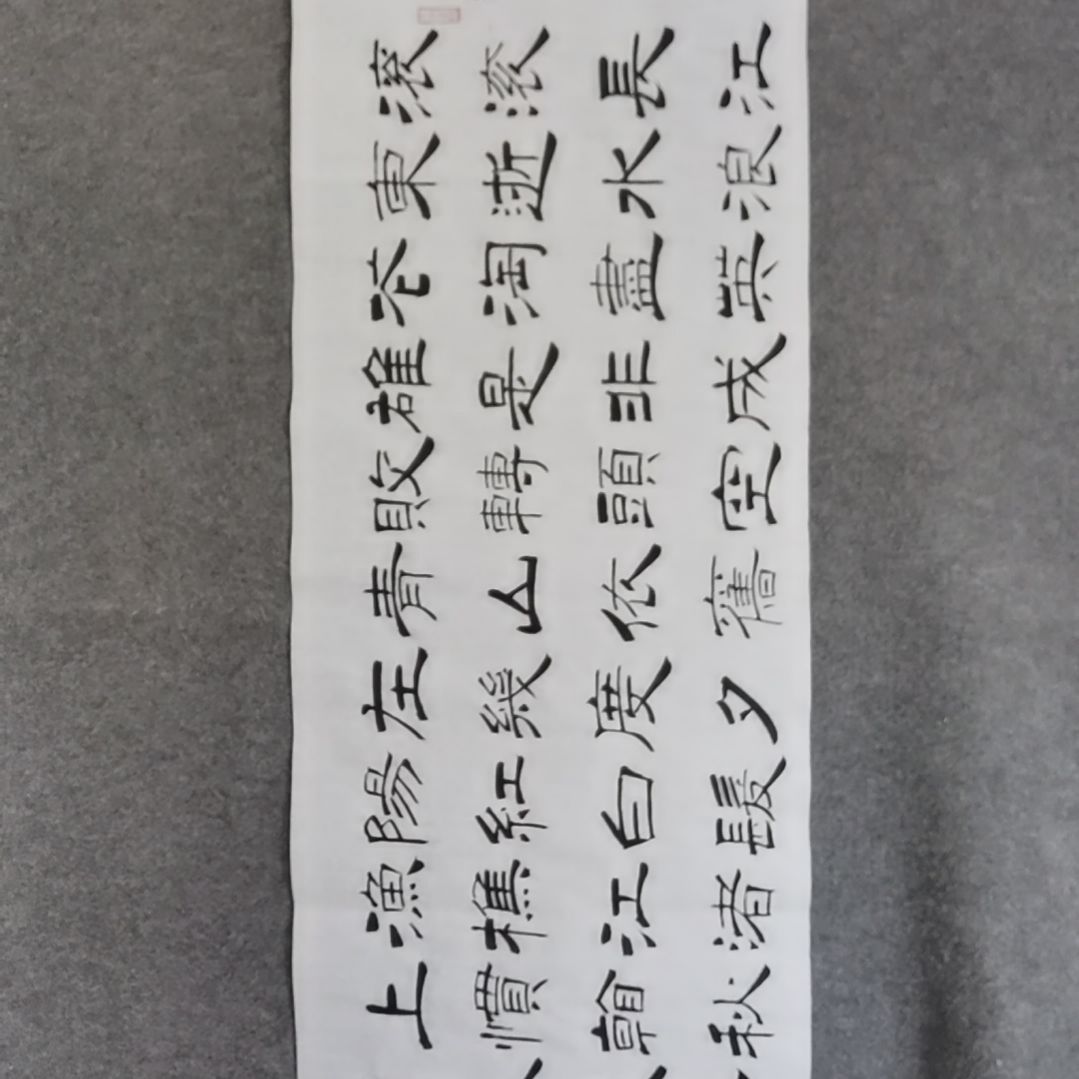 滚滚長江
東逝水浪
花淘盡英
雄是非成
敗轉頭空
青山依舊
在幾度夕
陽紅白髮
漁樵江渚
上慣秋